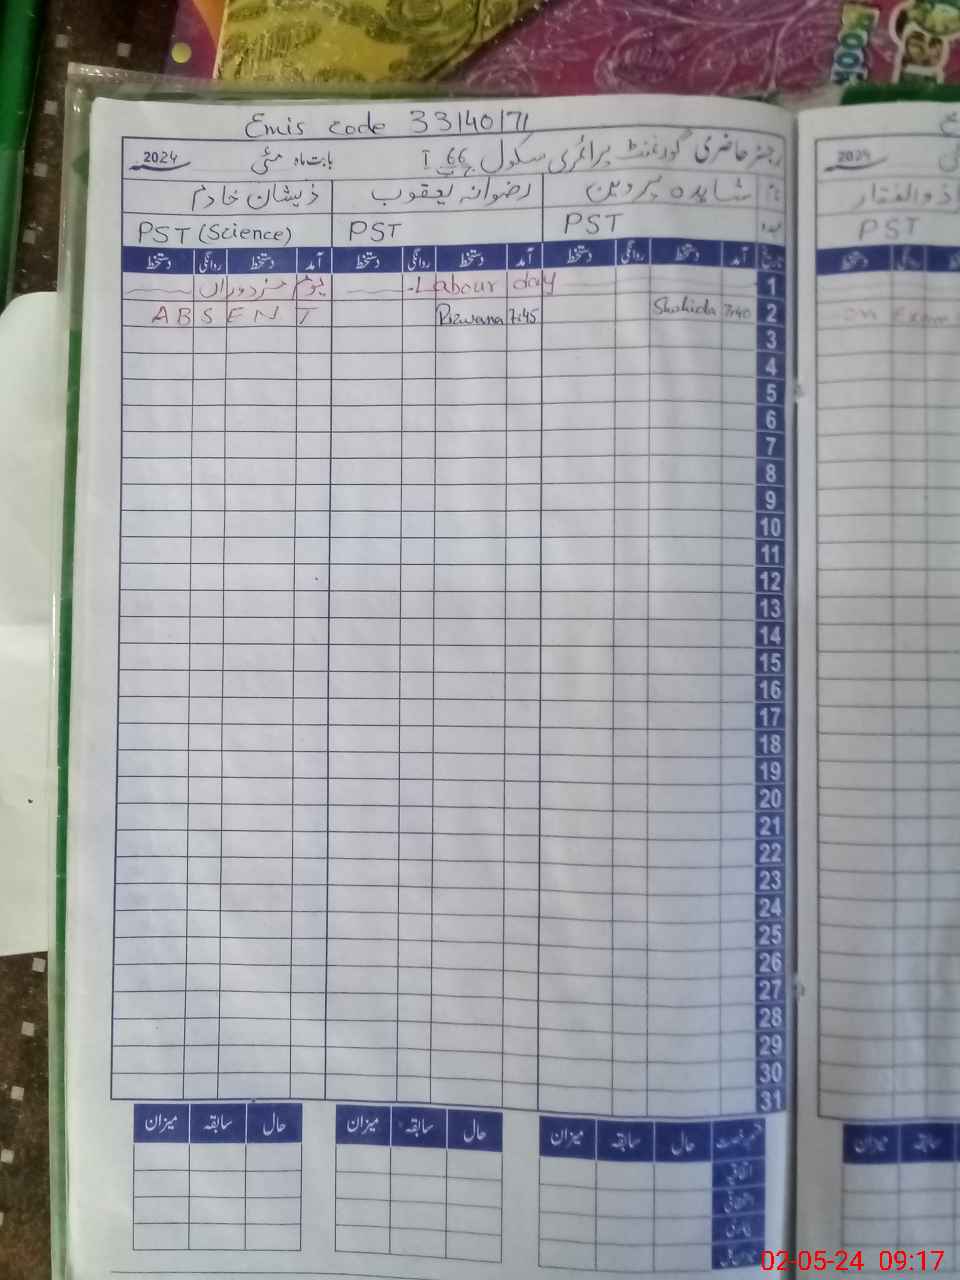 BOOK
Emis code 33140171
رجسٹر حاضری گورنمنٹ پرائمری سکول 66 بابت ماہ مئی 2024
نام شاہدہ پروین رضوانہ یعقوب ذیشان خادم
عہدہ PST PST PST (Science)
تاریخ آمد دستخط روانگی دستخط آمد دستخط روانگی دستخط آمد دستخط روانگی دستخط
1 Labour day یوم مزدوراں
2 7:40 Shahida 7:45 Rizwana ABSENT
3
4
5
6
7
8
9
10
11
12
13
14
15
16
17
18
19
20
21
22
23
24
25
26
27
28
29
30
31
حال سابقہ میزان حال سابقہ میزان حال سابقہ میزان
اتفاقیہ
استحقاقی
بیماری
2024
ذوالفقار
PST
دستخط روانگی
on Exam
سابقہ میزان
02-05-24 09:17